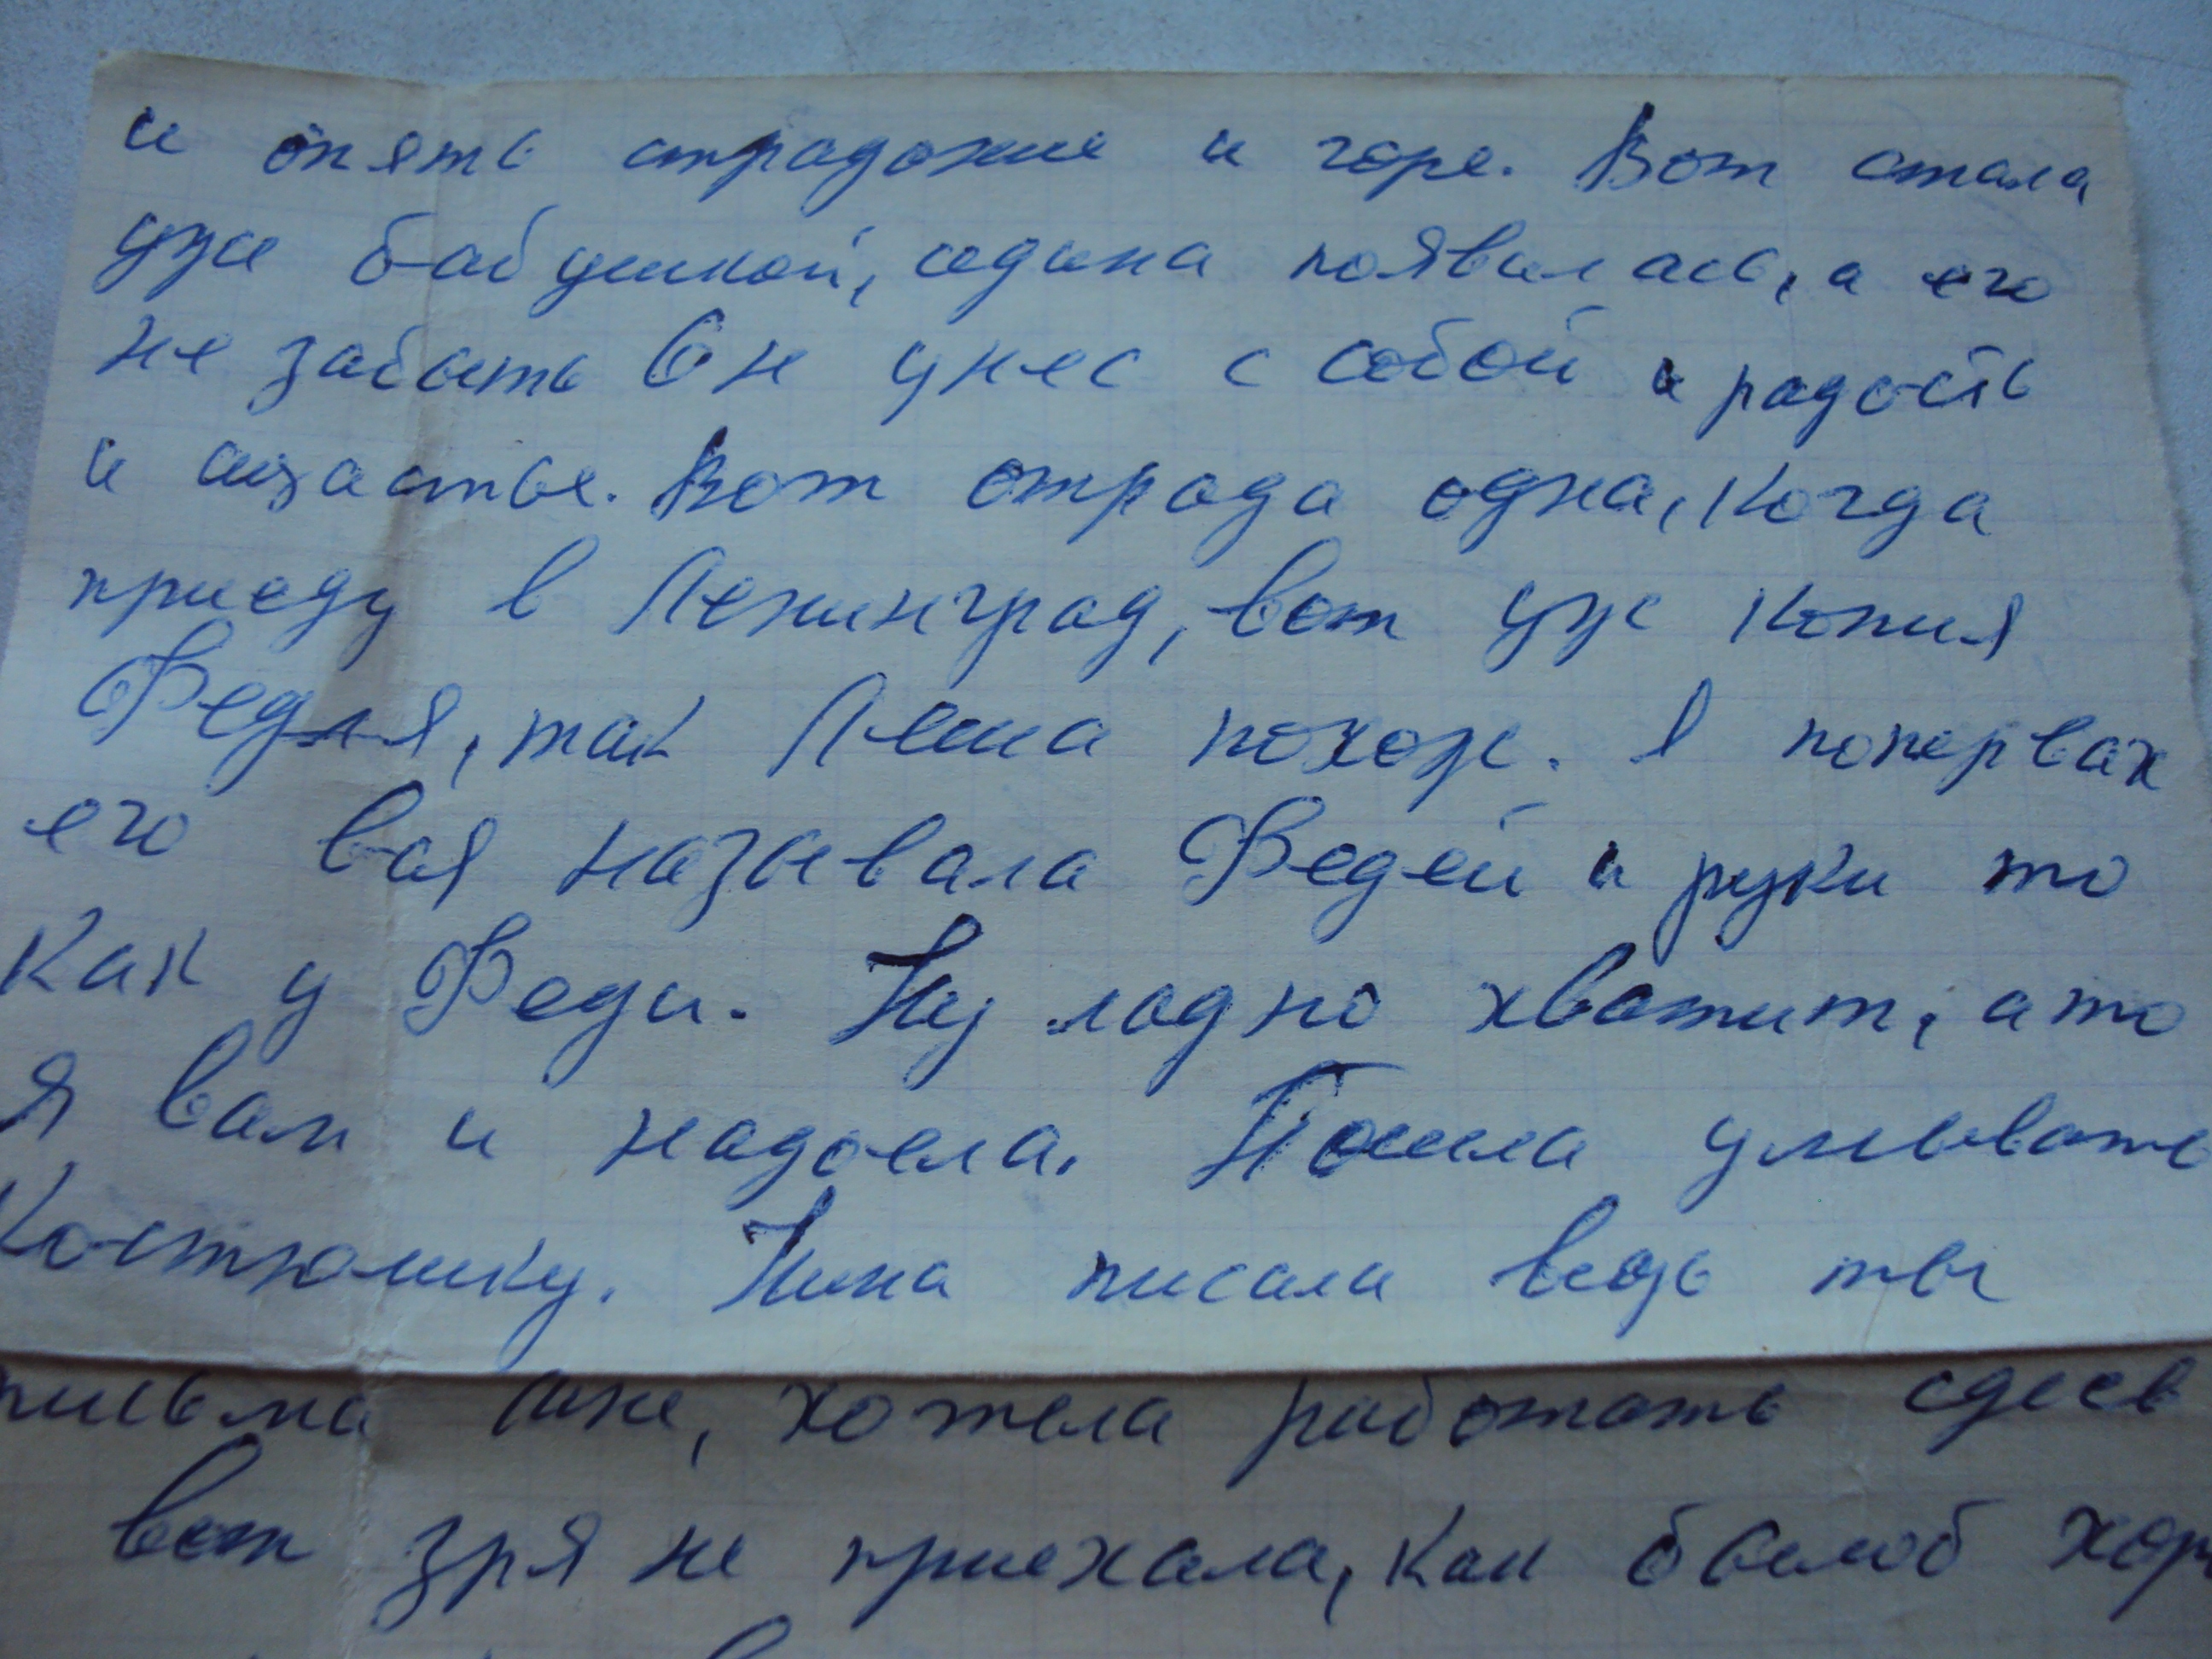 и опять страдание и горе. Вот стала
уже бабушкой, седина появилась, а его
не забыть Он унес с собой и радость
и щастье. Вот отрада одна, когда
приеду в Ленинград, вот уж копия
Федля, так Леша похож. Я поперван
его всё называла Федей и руки то
как у Феди. Ну ладно хватит, а то
я вам и надоела. Пошла умывать
Костюшку. Нина писала ведь ты
письма мне, хотела работать сдесь
вот зря не приехала, как былоб хор